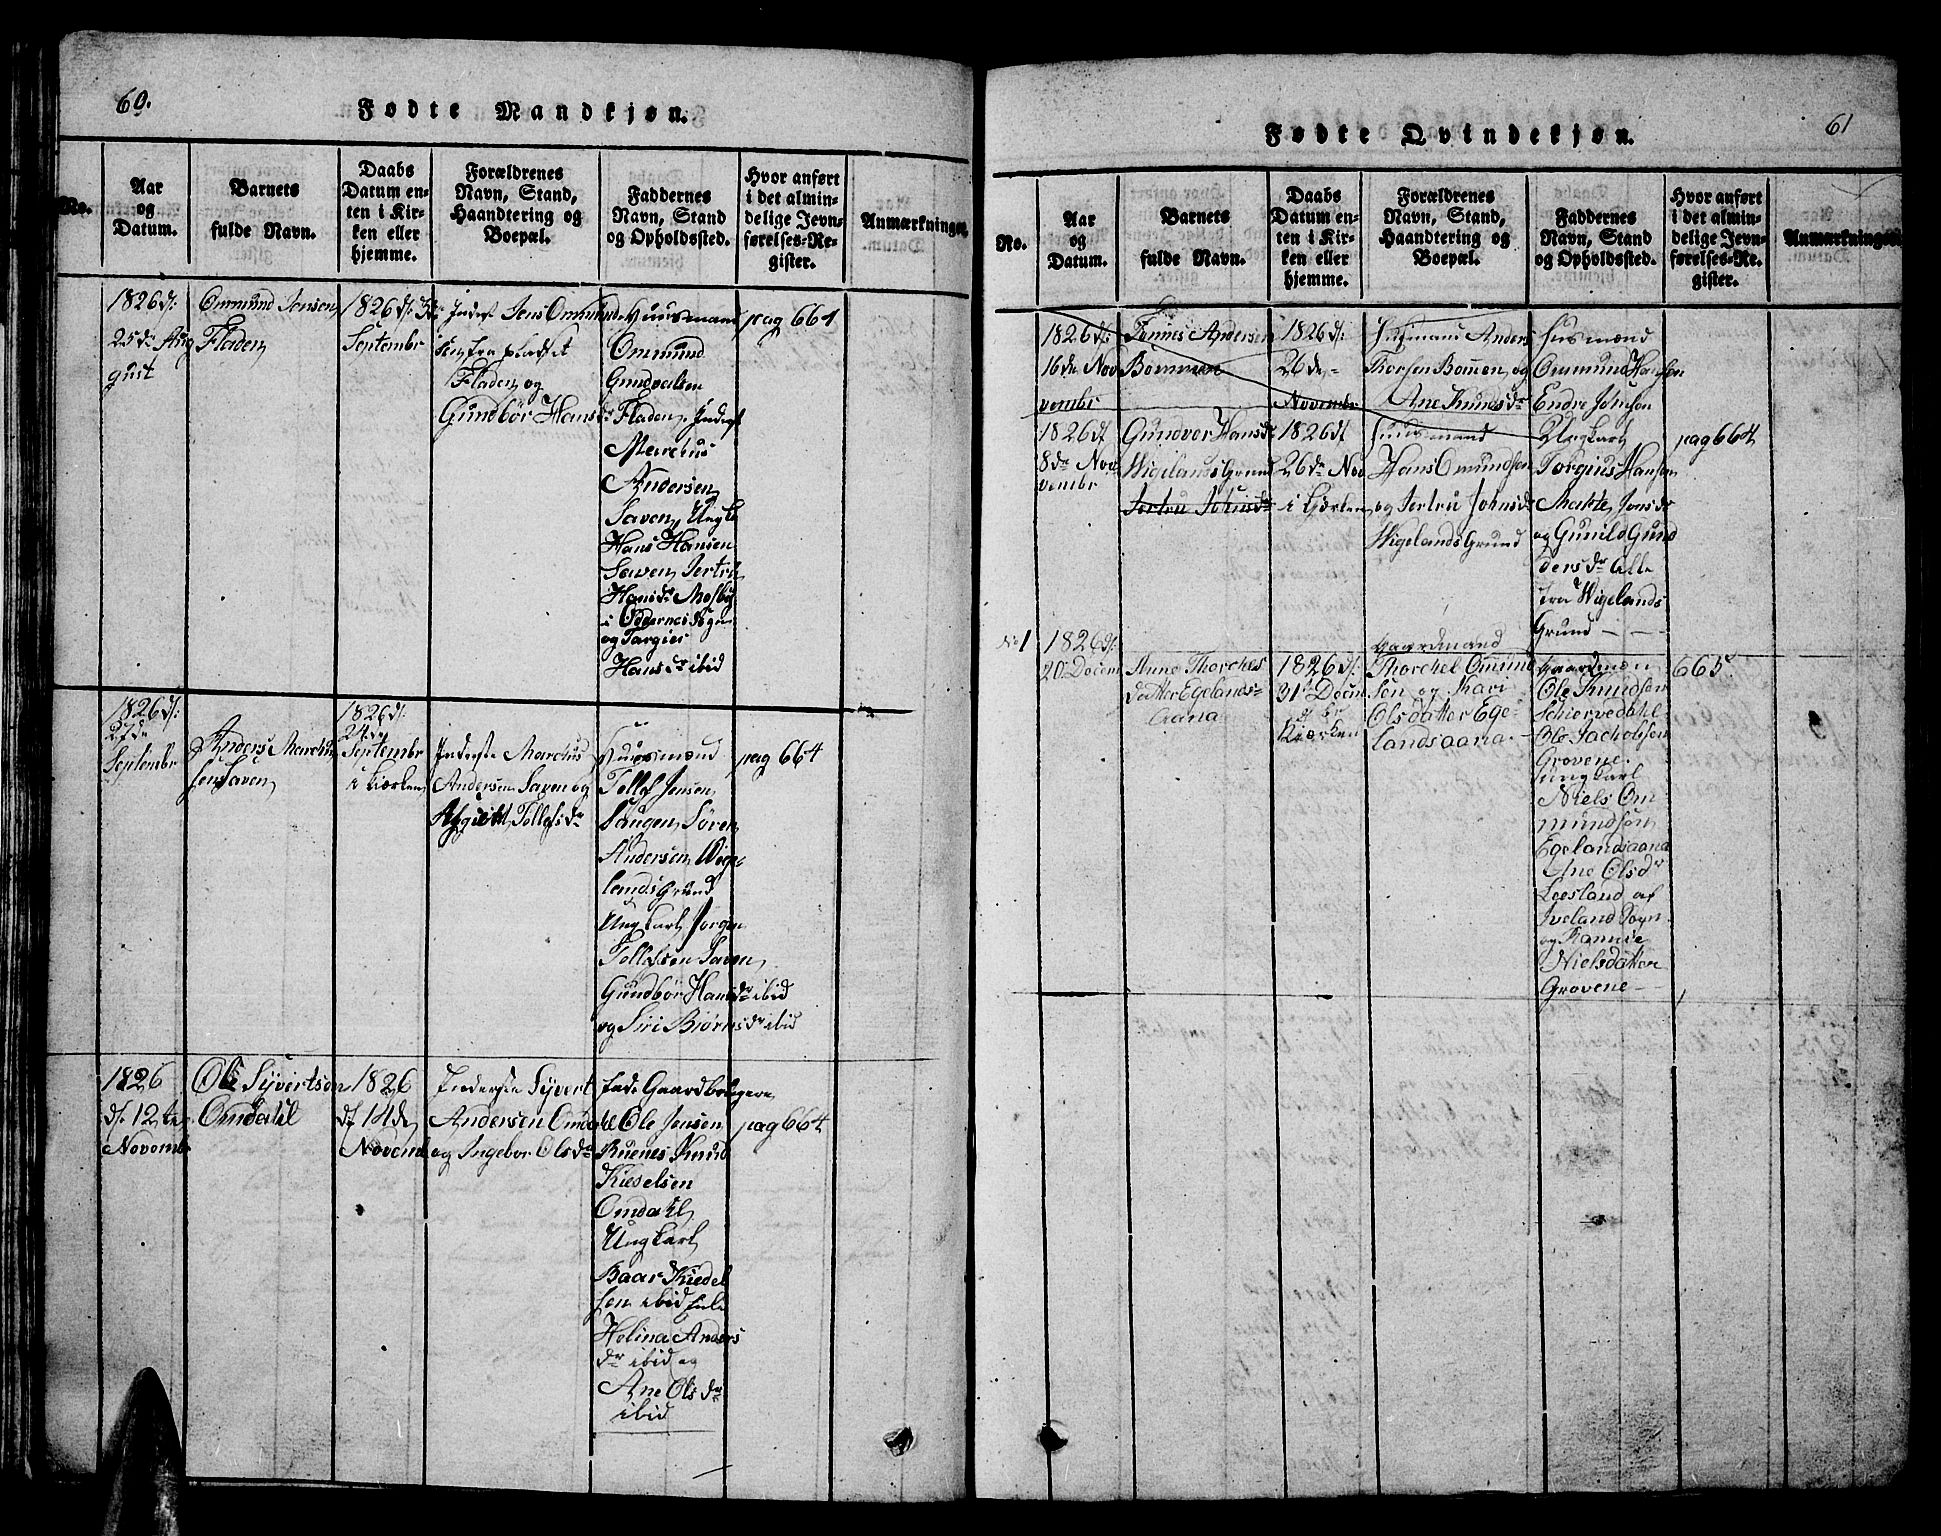 60.
Fødte Mandkjøn.
No.
Aar
og
Datum.
Barnets
fulde Navn.
Daabs
Datum en-
ten i Kir-
ken eller
hjemme.
Forældrenes
Navn, Stand,
Haandtering og
Boepæl.
Faddernes
Navn, Stand
og Opholdssted.
Hvor anført
i det almin-
delige Jevn-
førelses-Re-
gister.
Anmærkninger.
1826 d:
25de Aug
gust
Ommund Jensen
Fladen
1826 d: 3de
September
Inders Jens Ommund
sen fra pladset
Fladen og
Gundbør Hansdr
Huusmand
Ommund
Gundvalsen
Fladen, Inders
Marchus
Andersen
Saven, Ungk
Hans Hansen
Saven Jertru
Hansdr Mosby
i Oddernes Sogn
og Targier
Hansdr ibid
pag 664
1826 d:
27de
Septembr
Anders Marchus
sen Saven
1826 d:
24de
Septembr
i Kierken
Inderste Marchus
Andersen Saven og
Tollefsdr
Huusmænd
Tollef Jensen
Haugen Søren
Andersen Wige-
landsgrund
Ungkarl Jørgen
Tollefsen Saven
Gundbør Hansdr ibid
og Siri Biørnsdr ibid
pag 664
1826
d: 12te
Novembr
Ole Syvertsen
Omdahl
1826
d: 14de
Novemb
Inderste Syvert
Andersen Omdahl
og Ingebor Olsdr
Gaardbrugere
Ole Jensen
Buenes Knud
Kieselsen
Omdahl
Ungkarl
Baar Kiedel
sen ibid
Helina Anders
dr ibid og
Ane Olsdr
ibid
pag 664
61
Fødte Qvindekjøn.
No.
Aar
og
Datum.
Barnets
fulde Navn.
Daabs
Datum en-
ten i Kir-
ken eller
hjemme.
Forældrenes
Navn, Stand,
Haandtering og
Boepæl.
Faddernes
Navn, Stand
og Opholdssted.
Hvor anført
i det almin-
delige Jevn-
førelses-Re-
gister.
Anmærkninger.
1826 d:
16de Nov
vembr
Tønnes Andersen
Bommen
1826 d:
26de
Novembr
Husmand Anders
Thorsen Bommen og
Ane Knudsdr
Husmænd
Ommund Hansen
Endre Johnsen
1826 d:
8de Nov
vembr
Gundvor Hansdr
Wigelands Grund
Jertru Johnsdr
1826 d:
26de Nov
i Kierken
Huusmand
Hans Omundsen
og Jertru Johnsdr
Wigelands Grund
Ungkarl
Torgius Hansen
Makte Jonsdr
og Gunild Gund
dersdr alle
fra Wigelands
Grund
pag 664
No 1
1826 d:
20 Decem
Anne Thorchels
datter Egelands-
aana
1826 d:
31te Decm
br
Kierken
Gaardmand
Thorchel Omund
sen og Mari
Olsdatter Ege-
landsaana
Gaardmæn
Ole Knudsen
Schiervedahl
Ole Jacholsen
Grovene
ungkarl
Niels Om
mundsøn
Egelandsaana
Ane Olsdr
Leesland af
Iveland Sogn
og Ramise
Nielsdatter
Grovene
665